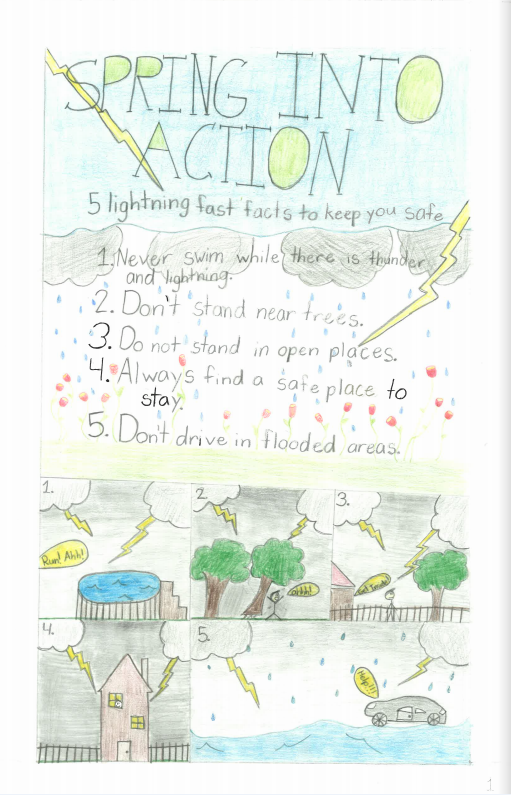 SPRING INTO
ACTION
5 lightning fast facts to keep you safe
1. Never swim while there is thunder
and lightning.
2. Don't stand near trees.
3. Do not stand in open places.
4. Always find a safe place to
stay.
5. Don't drive in flooded areas.
1.
2
3.
Run! Ahh!
ahhh!
4.
5.
Help!!!
1